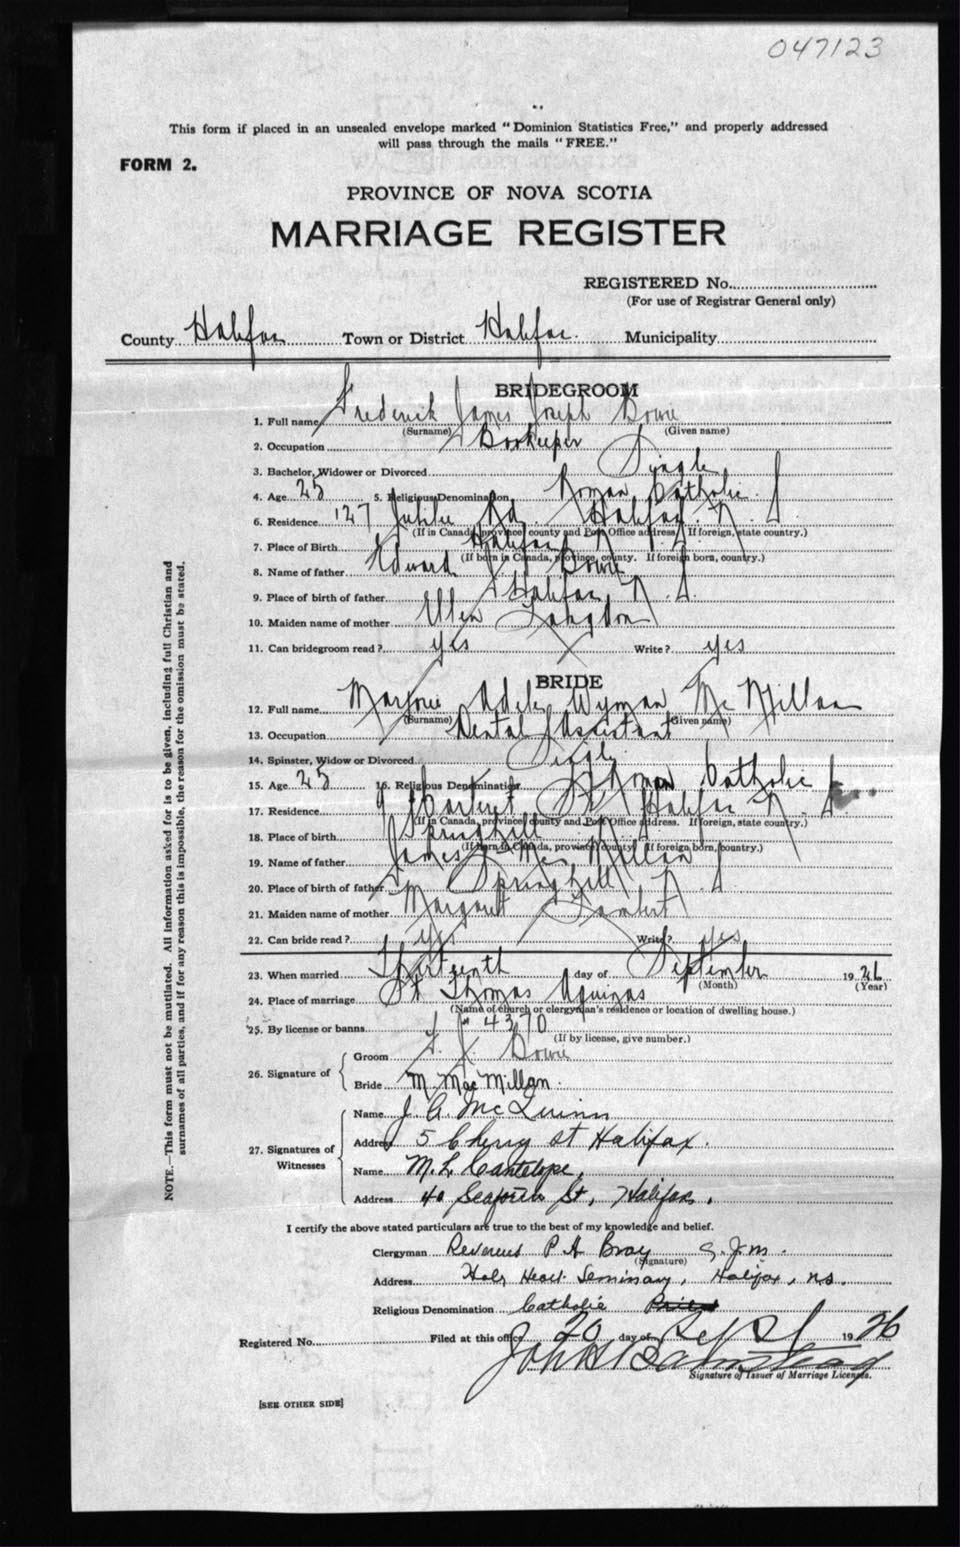 047123
This form if placed in an unsealed envelope marked "Dominion Statistics Free," and properly addressed
will pass through the mails "FREE."
FORM 2.
PROVINCE OF NOVA SCOTIA
MARRIAGE REGISTER
REGISTERED No.
(For use of Registrar General only)
County Halifax Town or District Halifax. Municipality
BRIDEGROOM
1. Full name Frederick James Joseph Bowie
(Surname) (Given name)
2. Occupation Bookeeper
3. Bachelor, Widower or Divorced Single
4. Age 25 5. Religious Denomination Roman Catholic.
6. Residence 127 Jubilee Rd. Halifax. N. S
(If in Canada, province, county and Post Office address. If foreign, state country.)
7. Place of Birth Halifax
(If born in Canada, province, county. If foreign born, country.)
8. Name of father Edward J. Bowie
9. Place of birth of father Halifax N. S.
10. Maiden name of mother Ellen Langdon
11. Can bridegroom read? yes Write? yes
BRIDE
12. Full name Marjorie Adele Wyman Mc Millan
(Surname) (Given name)
13. Occupation Dental Assistant
14. Spinster, Widow or Divorced Single
15. Age 25 16. Religious Denomination Roman Catholic
17. Residence 9 St Halifax N. S.
(If in Canada, province, county and Post Office address. If foreign, state country.)
18. Place of birth Springhill
(If born in Canada, province, county. If foreign born, country.)
19. Name of father James Mc Millan
20. Place of birth of father Springhill N. S
21. Maiden name of mother Margaret Lambert
22. Can bride read? yes Write? yes
23. When married Thirteenth day of September 1926
(Month) (Year)
24. Place of marriage St Thomas Aquinas
(Name of church or clergyman's residence or location of dwelling house.)
25. By license or banns 4370
(If by license, give number.)
26. Signature of
Groom F. J. Bowie
Bride M. MacMillan.
27. Signatures of Witnesses
Name J. A. McQuinn
Address 5 Cherry st Halifax.
Name M. L. Cantelope,
Address 40 Seaforth St, Halifax,
I certify the above stated particulars are true to the best of my knowledge and belief.
Clergyman Reverend P A Bray C. J. M.
(Signature)
Address Holy Heart Seminary, Halifax, N.S.
Religious Denomination Catholic
Registered No. Filed at this office 20 day of Sept 1926
Signature of Issuer of Marriage Licenses.
[SEE OTHER SIDE]
NOTE.—This form must not be mutilated. All information asked for is to be given, including full Christian and
surnames of all parties, and if for any reason this is impossible, the reason for the omission must be stated.